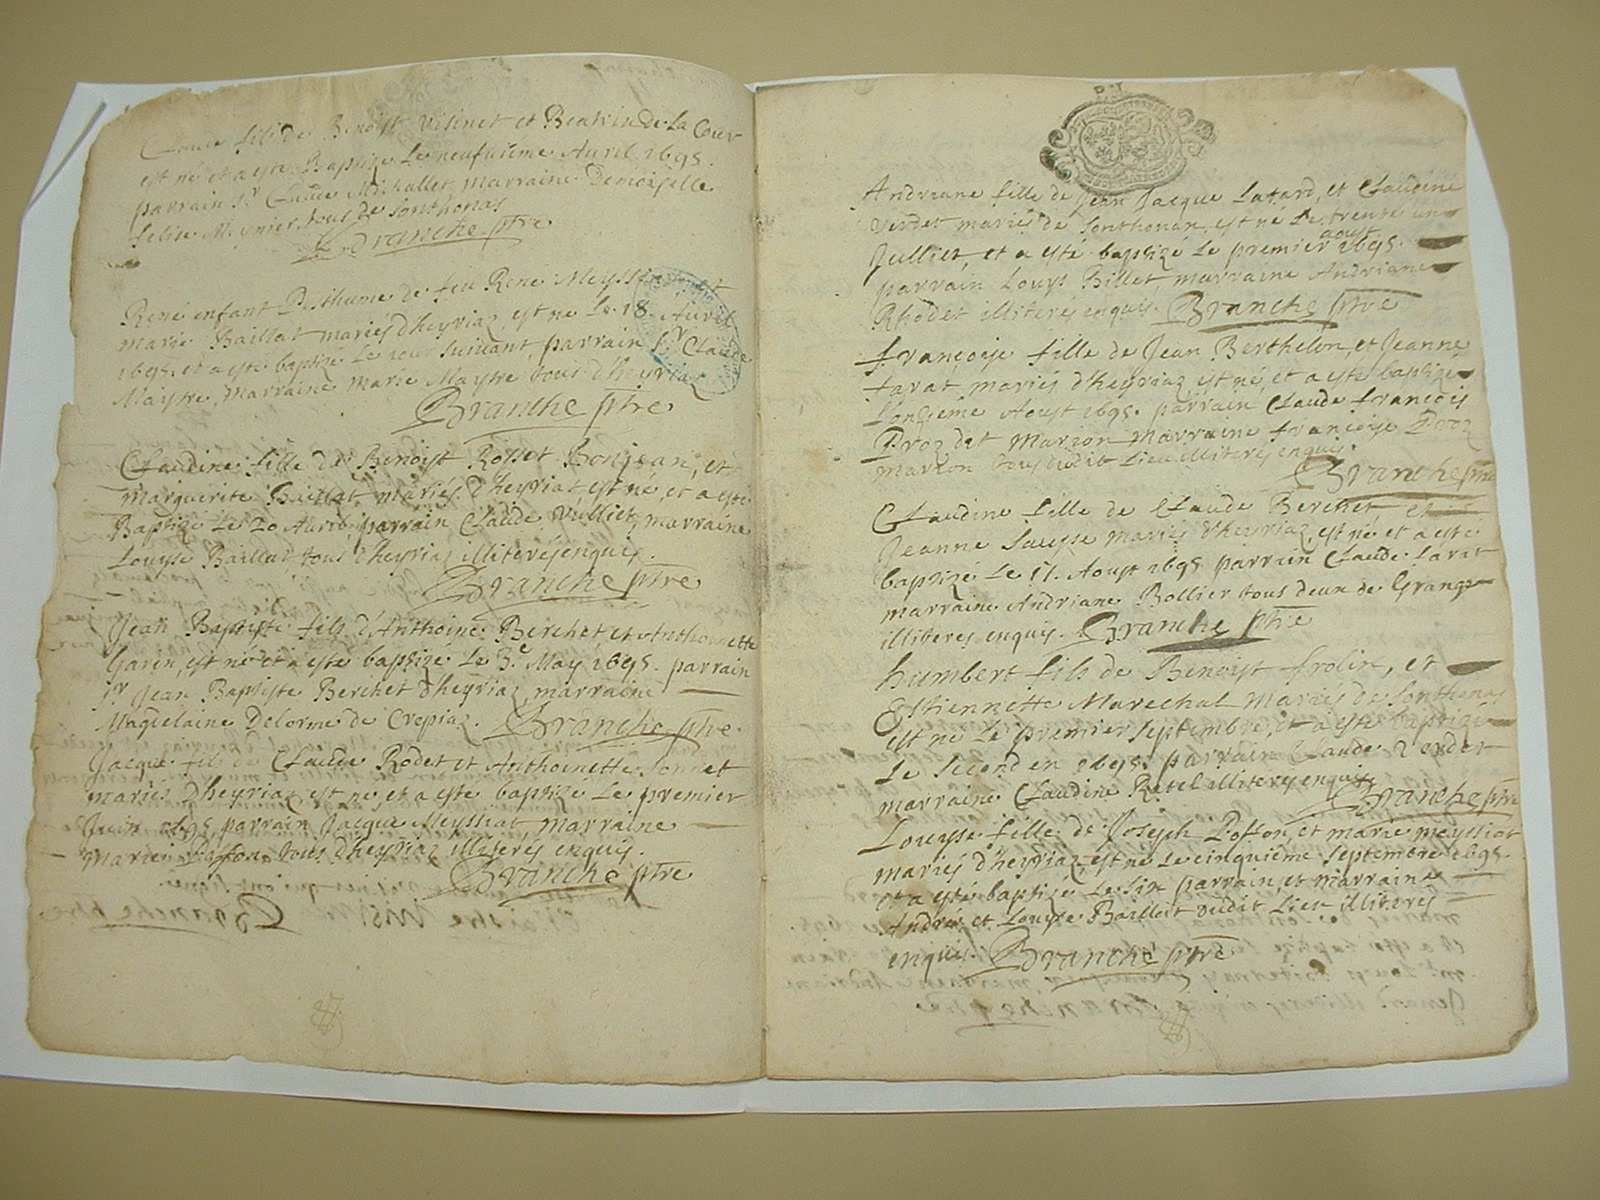 Claude fils de Benoist Visinet et Beatrix de La Cour
est né et a este Baptize le neufuieme Auril 1695.
parrain Sr Claude Michallet marraine Demoiselle
felise Meynier tous de Sonthonas
Branche ptre
René enfant Posthume de feu Rene Meyssiat et
marie Baillat mariés d'heyriaz, est né le 18. Auril
1695. et a esté baptizé le iour suiuant, parrain Sr Claude
Maystre, marraine marie Maystre tous d'heyriaz
Branche ptre
Claudine fille de Benoist Rosset Bonjean, et
marguerite Baillat mariés d'heyriat, est né, et a esté
Baptizé le 20 Auril, parrain Claude Vulliet, marraine
Louyse Baillat tous d'heyriaz illiterés enquis.
Branche ptre
Jean Baptiste fils d'Anthoine Berchet et Anthoinette
Garin, est né et a este baptizé le 3e May 1695. parrain
Sr Jean Baptiste Berchet d'heyriaz, marraine
Magdelaine Delorme de Crepiaz. Branche ptre.
Jacque fils de Claude Rodet et Anthoinette Sonnet
mariés d'heyriaz, est né, et a este baptizé le premier
Juin 1695 parrain Jacque Meyssiat marraine
Marie Poffon tous d'heyriaz illiterés enquis.
Branche ptre
Andriane fille de Jean Jacque Latard, et Claudine
Verdet mariés de Sonthonax, est né le trente un
Julliet, et a esté baptizé le premier aoust 1695.
parrain Louys Billet marraine Andriane
Rhodet illiterés enquis. Branche ptre
françoise fille de Jean Berthelon, et Jeanne
tarat mariés d'heyriaz est né, et a este baptizé
l'onzieme Aoust 1695. parrain Claude francois
Proz dit Marion marraine francoise Proz
marion tous dudit lieu illiterés enquis.
Branche ptre
Claudine fille de Claude Berchet, et
Jeanne mariés d'heyriaz, est né et a este
baptizé le 11. Aoust 1695 parrain Claude tarat
marraine Andriane Bollier tous deux de Grange
illiteres enquis. Branche ptre
humbert fils de Benoist frolin, et
Estiennette Marechal mariés de Sonthonas
est né le premier septembre, et a este baptizé
le second en 1695. parrain Claude Verdet
marraine Claudine Ratel illiteres enquis
Branche ptre
Louysse fille de Joseph Poffon, et marie meyssiat
mariés d'heyriaz, est né le cinquieme septembre 1695.
et a esté baptizé le six parrain, et marraine
André, et Louyse Baillat dudit lieu illiteres
enquis. Branche ptre